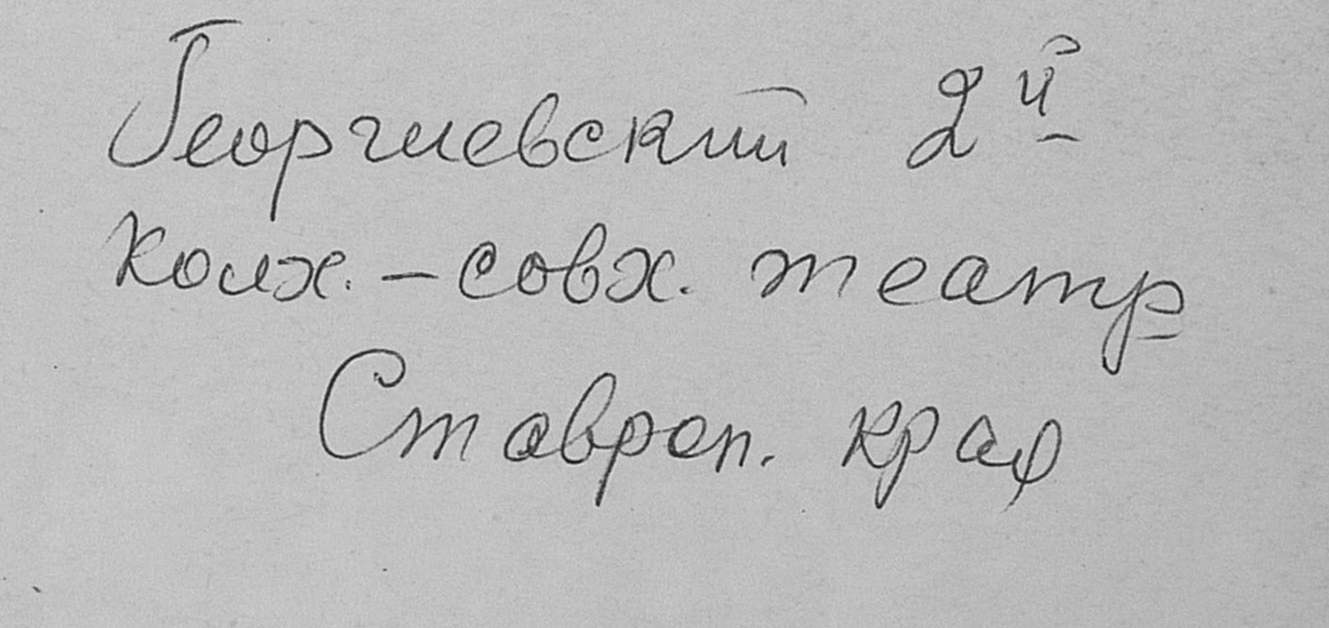 Георгиевский 2й
колх. – совх. театр
Ставроп. края